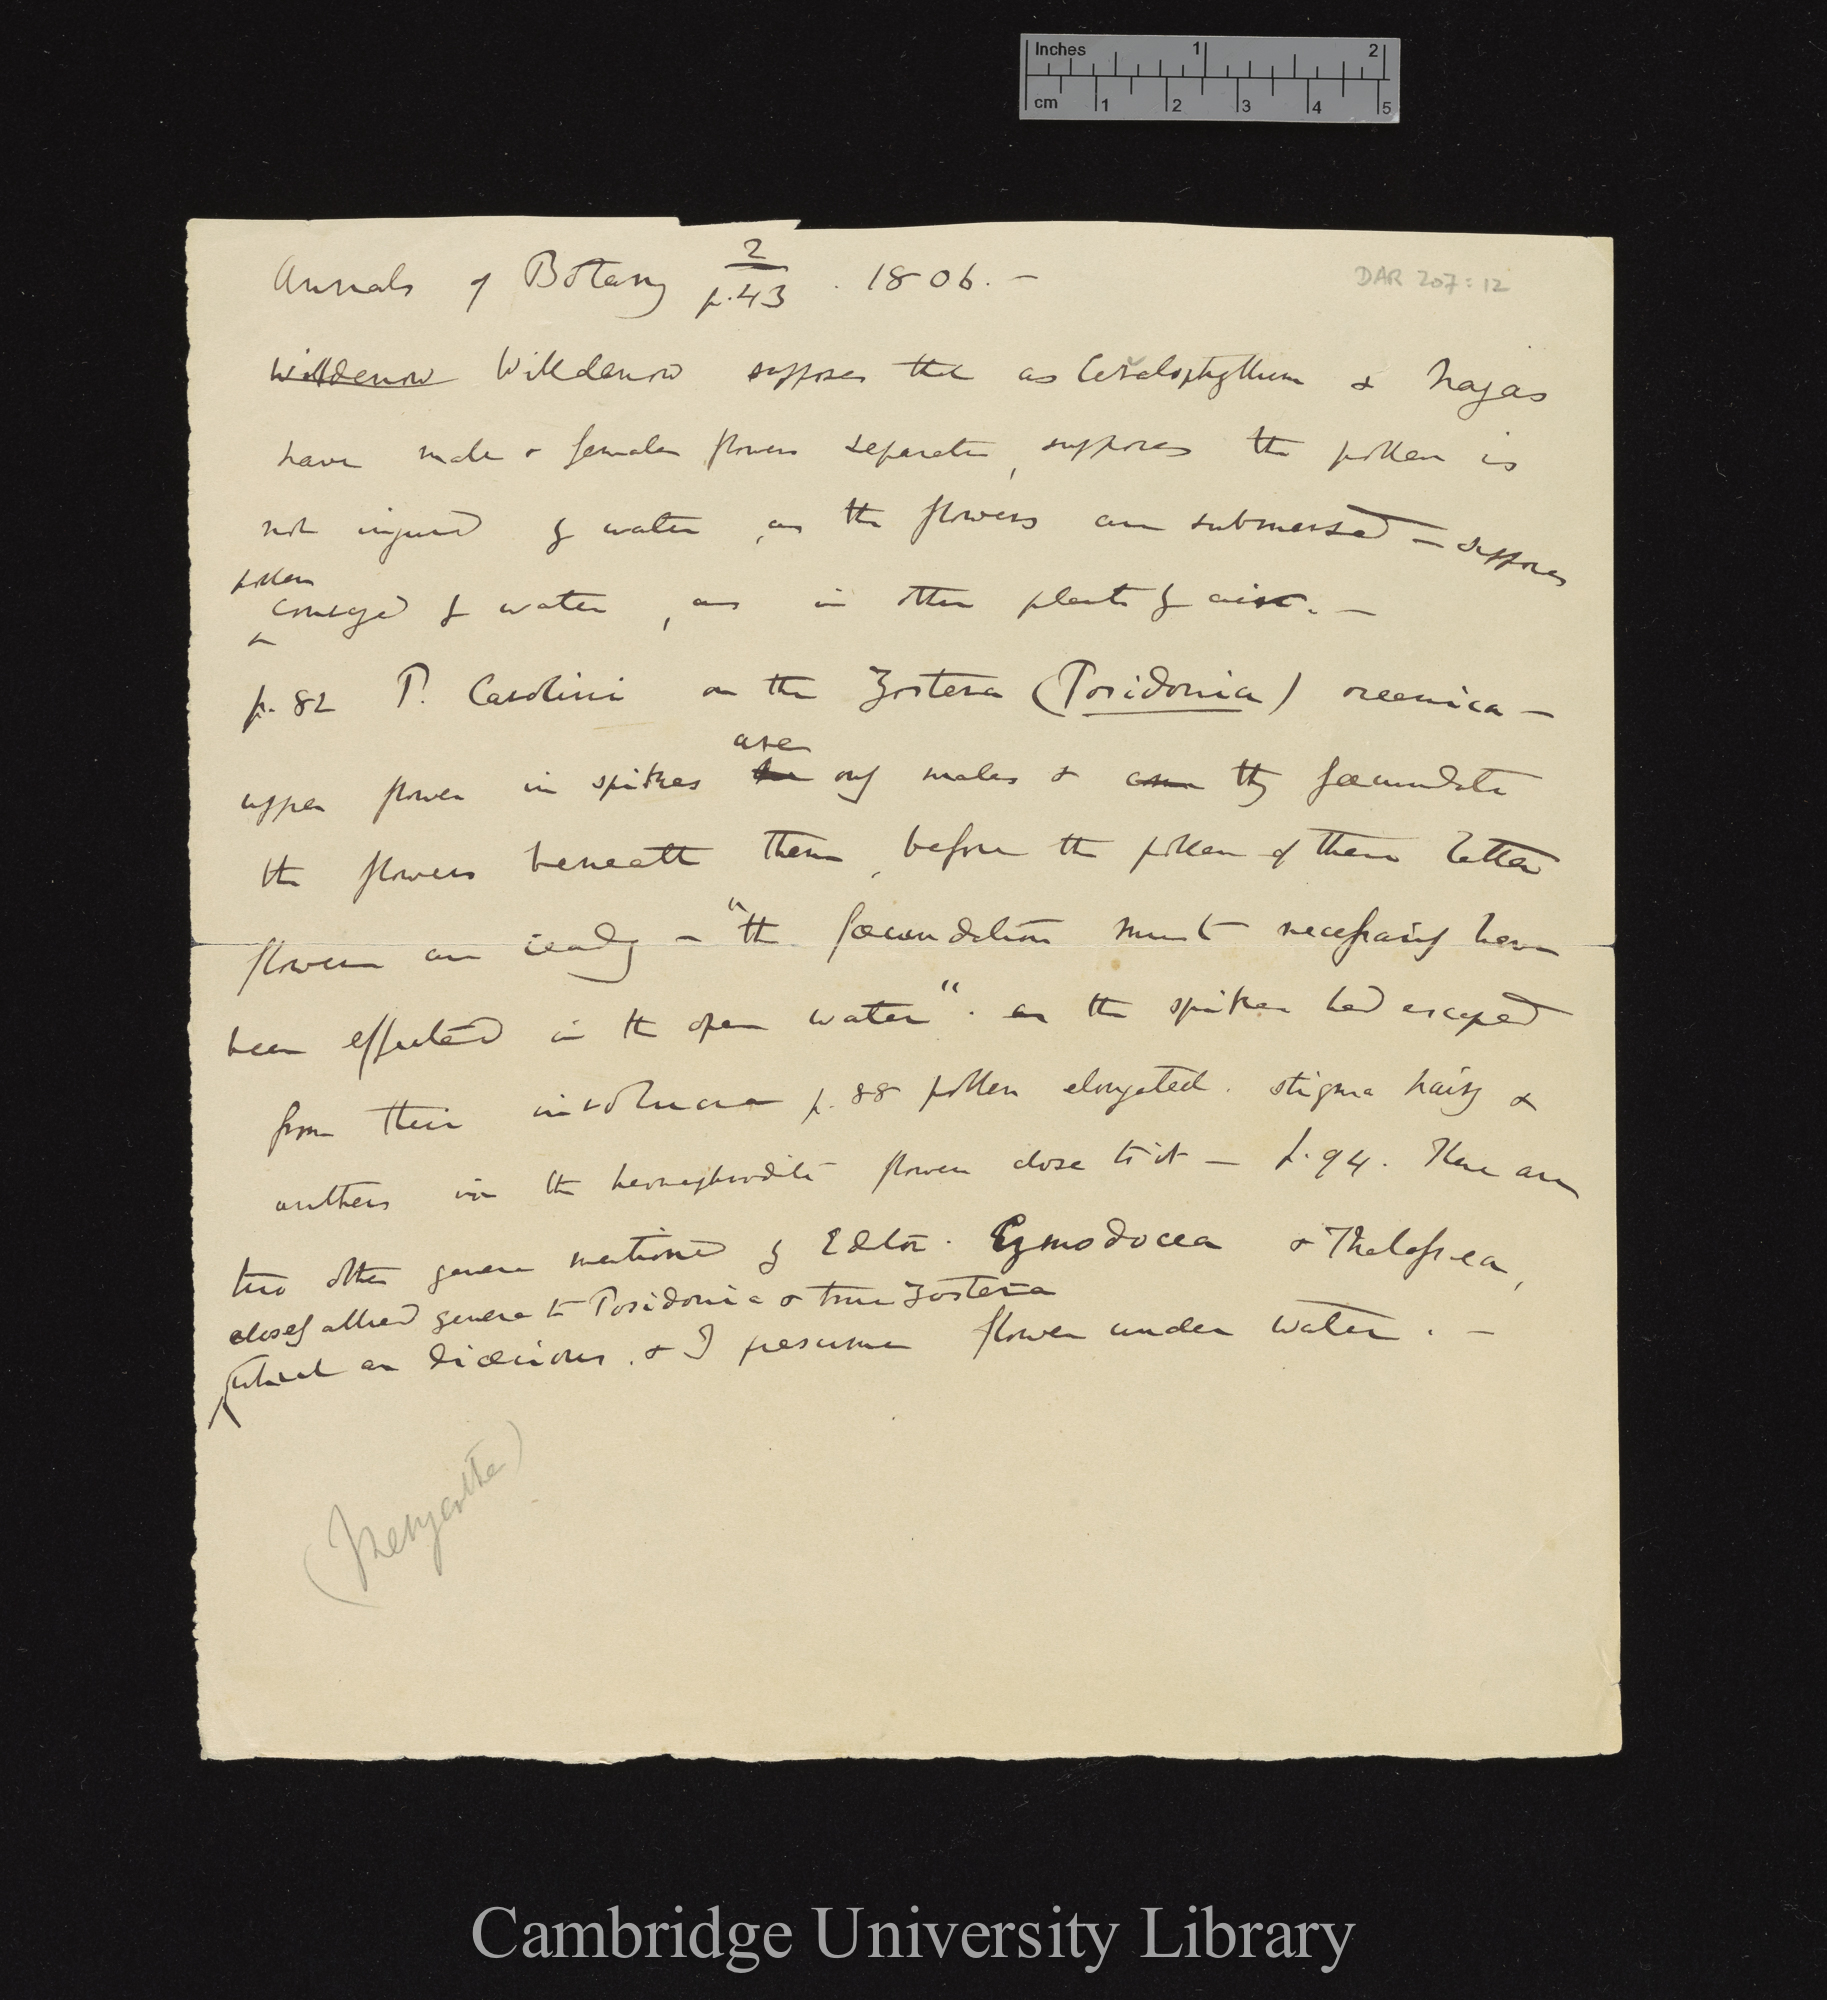 Inches 1 2
cm 1 2 3 4 5
DAR 207:12
Annals of Botany 2/p.43 . 1806. —
Willdenow Willdenow supposes that as Ceratophyllum & Najas
have male & females flowers separate, supposes the pollen is
not injured by water, as the flowers are submersed — supposes
pollen
conveyed by water, as in other plants by air. —
p. 82 P. Cavolini on the Zostera (Posidonia) oceanica —
are
upper flower in spikes only males & they fœcundate
the flowers beneath them, before the pollen of these latter
flowers are ready — "the fœcundation must necessarily have
been effected in the open water". as the spikes had escaped
from their involucra p. 88 pollen elongated. stigma hairy &
anthers in the hermaphrodite flowers close to it — p. 94. There are
two other genera mentioned by Editor. Cymodocea & Thalassia,
closely allied genera to Posidonia & true Zostera
which are diœcious. & I presume flower under water. —
(Menyanthes)
Cambridge University Library